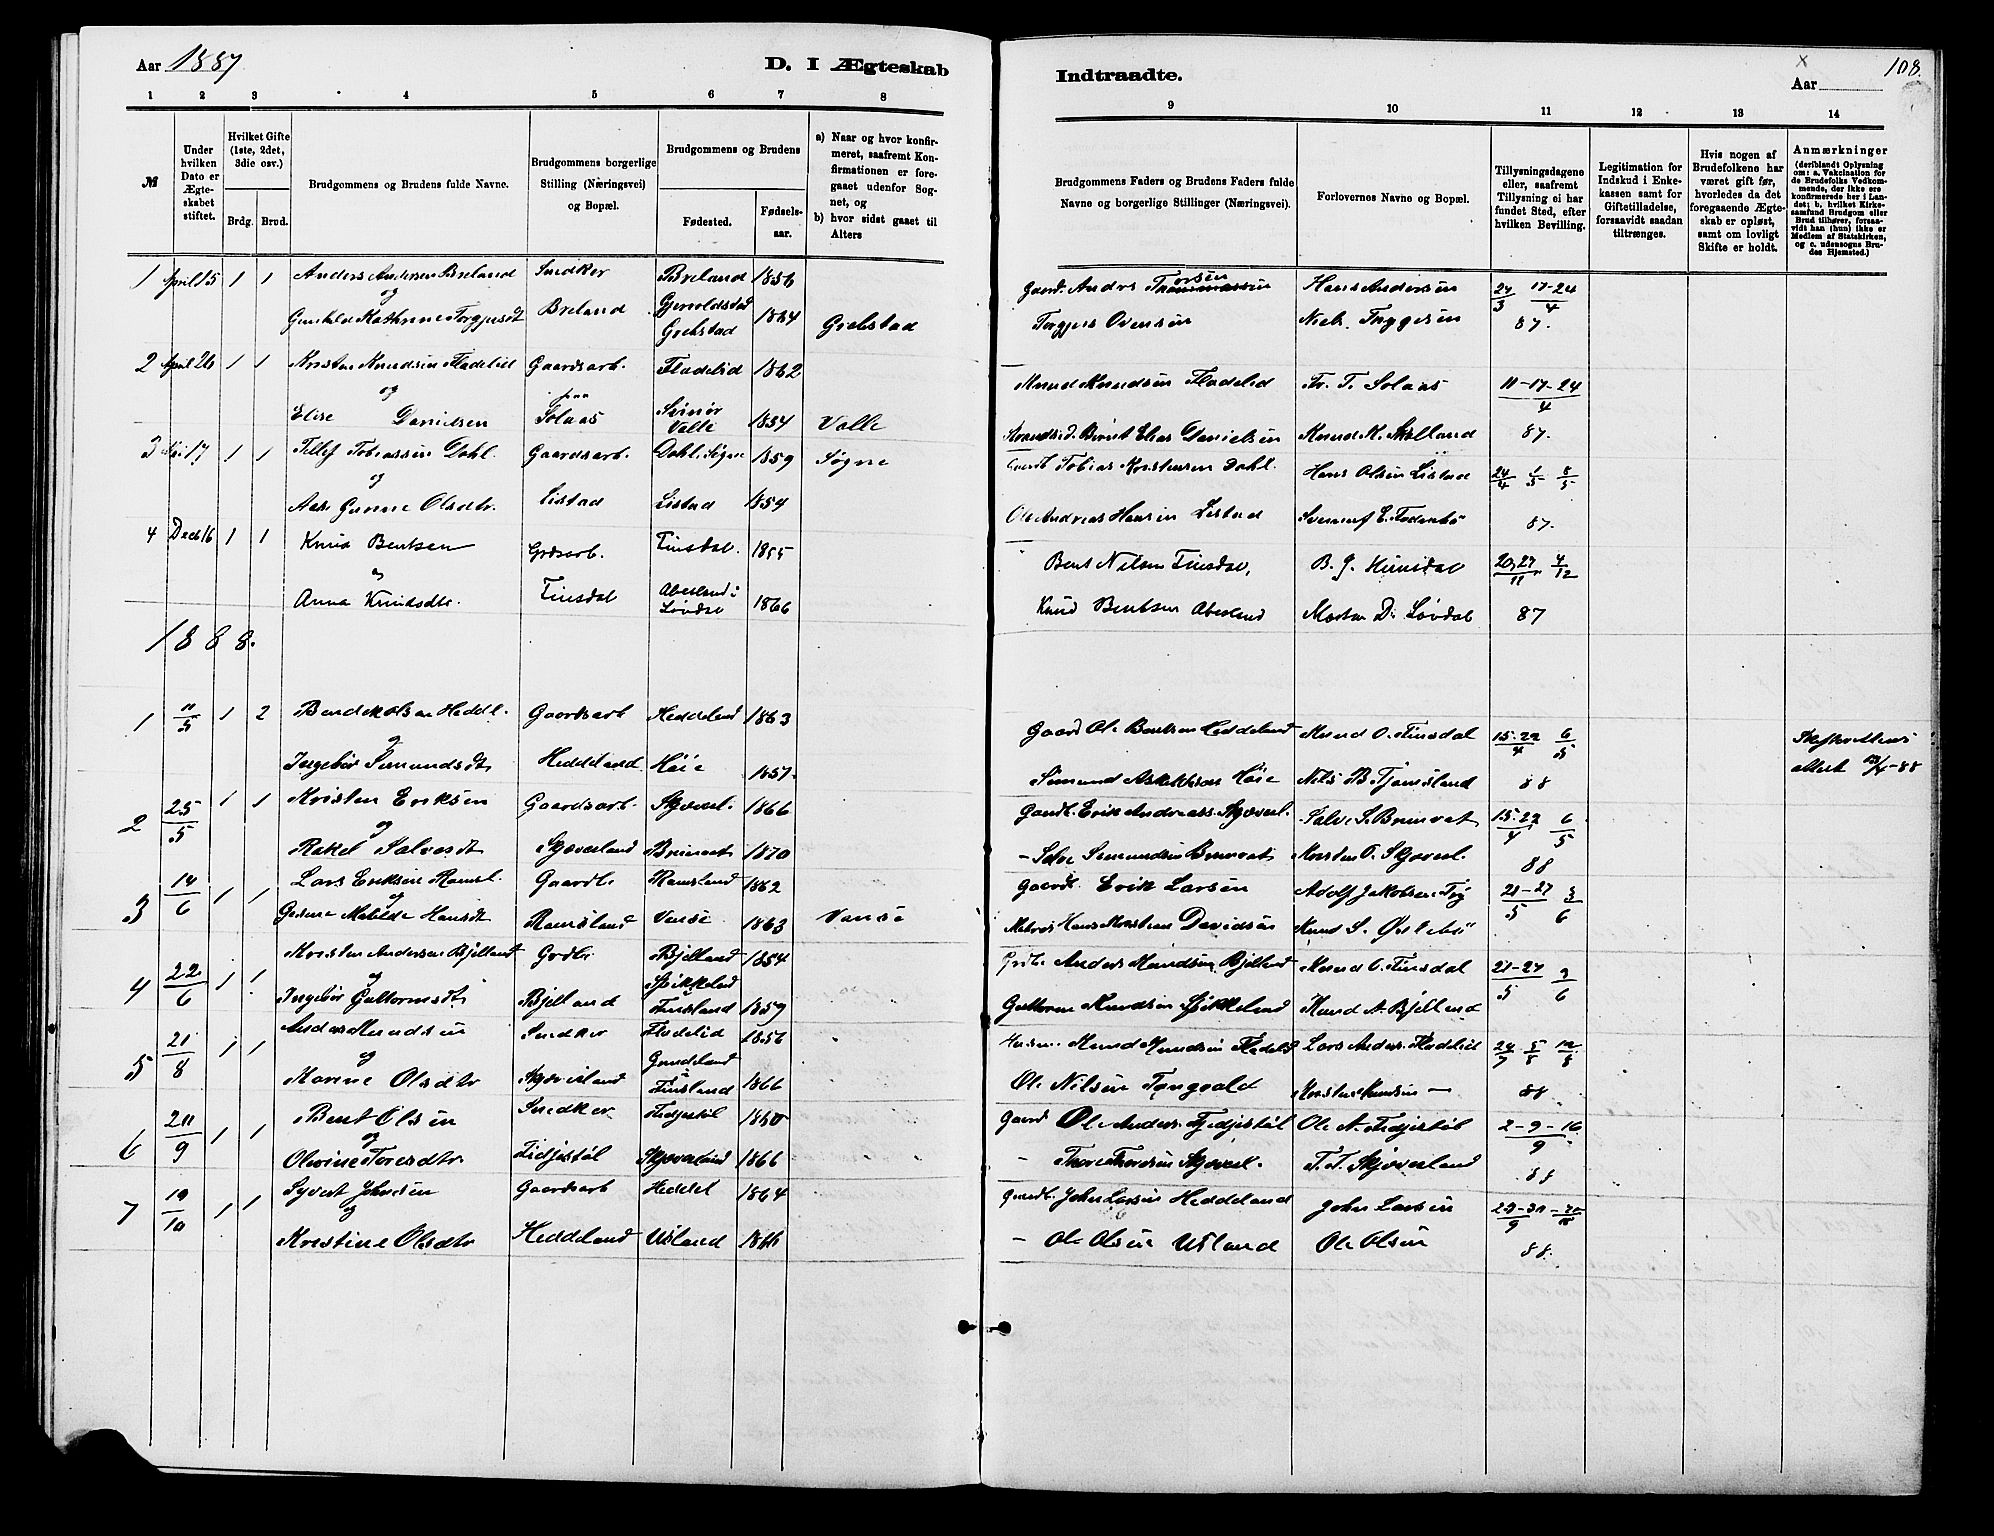 Aar 1887
D. I Ægteskab
1 2 3 4 5 6 7 8
№
Under hvilken Dato er Ægteskabet stiftet.
Hvilket Gifte (1ste, 2det, 3die osv.)
Brdg. Brud.
Brudgommens og Brudens fulde Navne.
Brudgommens borgerlige Stilling (Næringsvei) og Bopæl.
Brudgommens og Brudens
Fødested. Fødselsaar.
a) Naar og hvor konfirmeret, saafremt Konfirmationen er foregaaet udenfor Sognet, og
b) hvor sidst gaaet til Alters
1 April 15 1 1 Anders Andersen Breland Snedker Breland 1856
og
Gunhilde Kathrine Torgjusdt Breland Gjervoldstad Grebstad 1864 Grebstad
2 April 26 1 1 Kristen Knudsen Fladelid Gaardsarb. Fladelid 1862
og paa
Elise Danielsen Solaas Valle 1854 Valle
3 17 1 1 Tellef Tobiassen Dahl Gaardsarb. Dahl, Søgne 1859 Søgne
og
Aase Gunne Olsdtr. Listad Listad 1854
4 Decb 16 1 1 Knud Bentsen Grdsarb. Finsdal. 1855
og
Anna Knudsdtr. Finsdal Abesland i Løvdal 1866
1888.
1 11/5 1 2 Bendik Olsen Heddl. Gaardsarb Heddeland 1863
og
Ingebor Semundsdt Heddeland Høie 1857
2 25/5 1 1 Kristen Eriksen Gaardsarb. Skjæverl. 1866
og
Rakel Salvesdt Skjæverland Brunvat 1870
3 14/6 1 1 Lars Eriksen Ramsl. Gaardbr. Ramsland 1862
og
Gesine Matilde Hansdt Ramsland Vansø 1863 Vansø
4 22/6 1 1 Kristen Andersen Bjelland Grdbr. Bjelland 1854
og
Ingebor Guttormsdt Bjelland Spikkeland Finsland 1859
5 21/8 1 1 Anders Knudsen Snedker Fladelid 1856
og
Karine Olsdtr Skjæverland Grundeland Finsland 1866
6 20/9 1 1 Bent Olsen Snedker Fidjestøl 1850
og
Olevine Toresdtr Fidjestøl Skjæverland 1866
7 19/10 1 1 Syvert Johnsen Gaardsarb Heddel 1864
og
Kristine Olsdtr Heddeland Usland 1866
Indtraadte.
x
Aar 108.
9 10 11 12 13 14
Brudgommens Faders og Brudens Faders fulde Navne og borgerlige Stillinger (Næringsvei).
Forlovernes Navne og Bopæl.
Tillysningsdagene eller, saafremt Tillysning ei har fundet Sted, efter hvilken Bevilling.
Legitimation for Indskud i Enkekassen samt for Giftetilladelse, forsaavidt saadan tiltrænges.
Hvis nogen af Brudefolkene har været gift før, hvorledes da det foregaaende Ægteskab er opløst, samt om lovligt Skifte er holdt.
Anmærkninger
(deriblandt Oplysning om: a. Vakcination for de Brudefolks Vedkommende, der ikke ere konfirmerede her i Landet; b. hvilket Kirkesamfund Brudgom eller Brud tilhører, forsaavidt han (hun) ikke er Medlem af Statskirken, og c. udensogns Brudes Hjemsted.)
Gaardbr. Anders Torsen Hans Andersen 24/3 17-24/4
Torgjus Ovensen Niels Tryggesen 87.
Knud Knudsen Fladelid Fr. T. Solaas 11-17-24/4
Strandsid. Bernt Elias Danielsen Knud K. 87.
Gaardb Tobias Kristensen Dahl. Hans Olsen Listad 24/4 1/5 8/5
Ole Andreas Hansen Listad 87.
Bent Nilsen Finsdal, B. G. Hunsdal 20,27/11 4/12
Knud Bentsen Abesland Morten D. Løvdal 87
Gaardb Ole Bentsen Heddeland Knud O. Finsdal 15-22/4 6/5
Semund Askildsen Høie Nils B Tjomsland 88
Gaardb. Erik Andreass. Skjæverl. Salve S. Brunvat 15-22/4 6/5
- Salve Semundsen Brunvat Kristen O. Skjæverl. 88
Gaardb. Erik Larsen Adolf Jakobsen 21-27/5 3/6
Hans Kristian Davidsen Knud S. Øslebø
Grdbr. Anders Knudsen Bjelland Knud O. Finsdal 21-27/5 3/6
Guttorm Knudsen Spikkeland Knud A. Bjelland
Husm. Knud Knudsen Fladelid Lars Anders. Fladelid 29/7 5/8 12/8
Ole Nilsen Tangvald Kristen Knudsen - 88.
Gaardb Ole Anders. Fidjestøl Ole N. Fidjestøl 2-9-16/9
- Thore Thorsen Skjæverl. T. T. Skjæverland 88
Gaardb. John Larsen Heddeland John Larsen
- Ole Olsen Usland Ole Olsen 88.